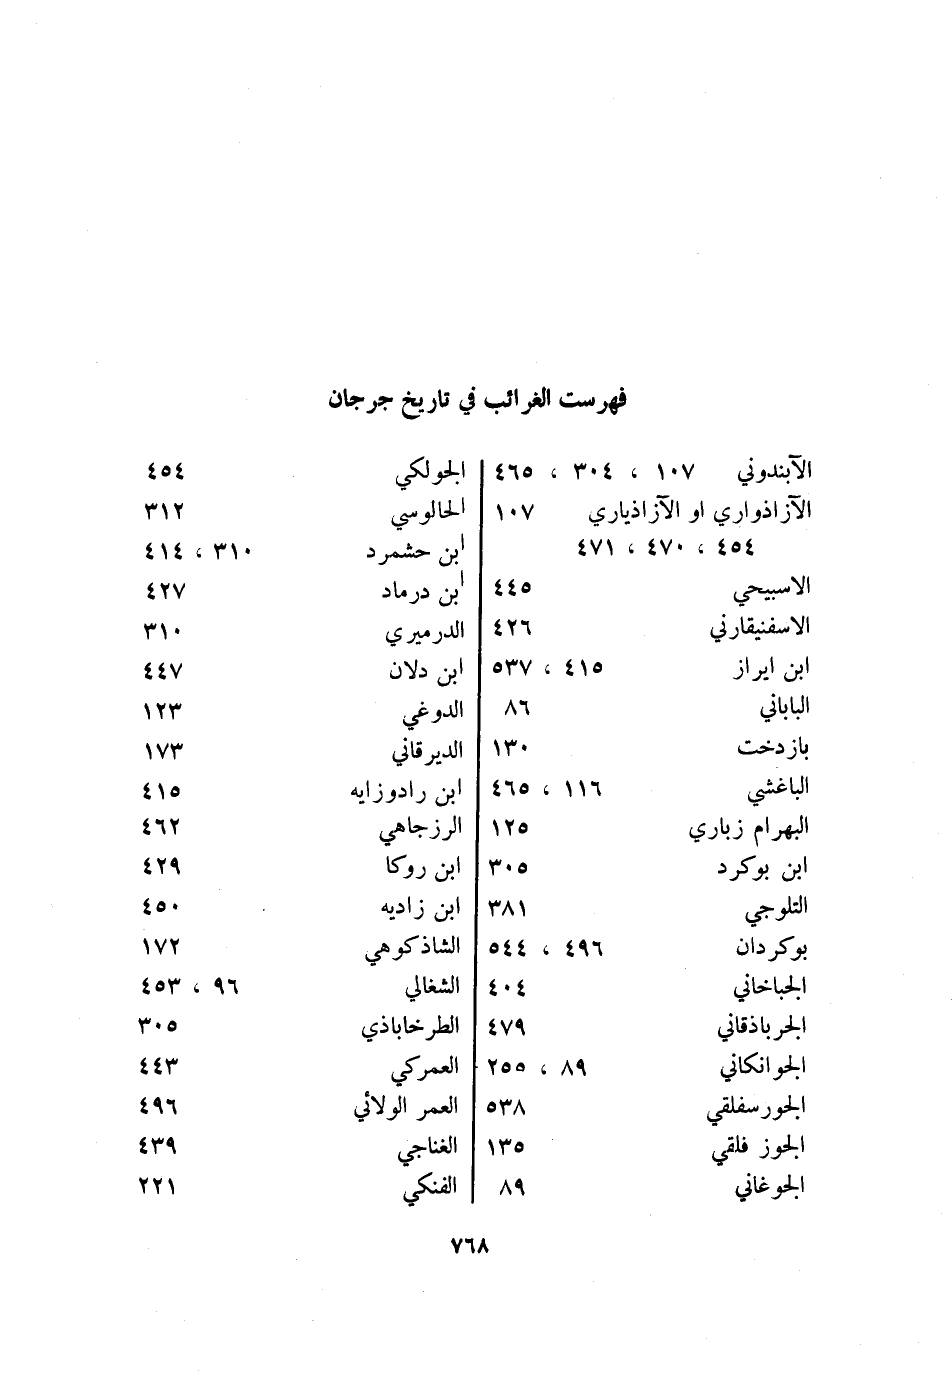 فهرست الغرائب في تاريخ جرجان
الآبندوني ١٠٧ ، ٣٠٤ ، ٤٦٥
الآزاذواري او الآزاذياري ١٠٧
٤٥٤ ، ٤٧٠ ، ٤٧١
الاسبيحي ٤٤٥
الاسفنيقارني ٤٢٦
ابن ايراز ٤١٥ ، ٥٣٧
الباباني ٨٦
بازدخت ١٣٠
الباغشي ١١٦ ، ٤٦٥
البهرام زباري ١٢٥
ابن بوكرد ٣٠٥
التلوجي ٣٨١
بوكردان ٤٩٦ ، ٥٤٤
الجباخاني ٤٠٤
الجرباذقاني ٤٧٩
الجوانكاني ٨٩ ، ٢٥٥
الجورسفلقي ٥٣٨
الجوز فلقي ١٣٥
الجوغاني ٨٩
الجولكي ٤٥٤
الحالوسي ٣١٢
أبن حشمرد ٣١٠ ، ٤١٤
أبن درماد ٤٢٧
الدرميري ٣١٠
ابن دلان ٤٤٧
الدوغي ١٢٣
الديرقاني ١٧٣
ابن رادوزايه ٤١٥
الرزجاهي ٤٦٢
ابن روكا ٤٢٩
ابن زاديه ٤٥٠
الشاذكوهي ١٧٢
الشغالي ٩٦ ، ٤٥٣
الطرخاباذي ٣٠٥
العمركي ٤٤٣
العمر الولائي ٤٩٦
الغناجي ٤٣٩
الفنكي ٢٢١
٧٦٨